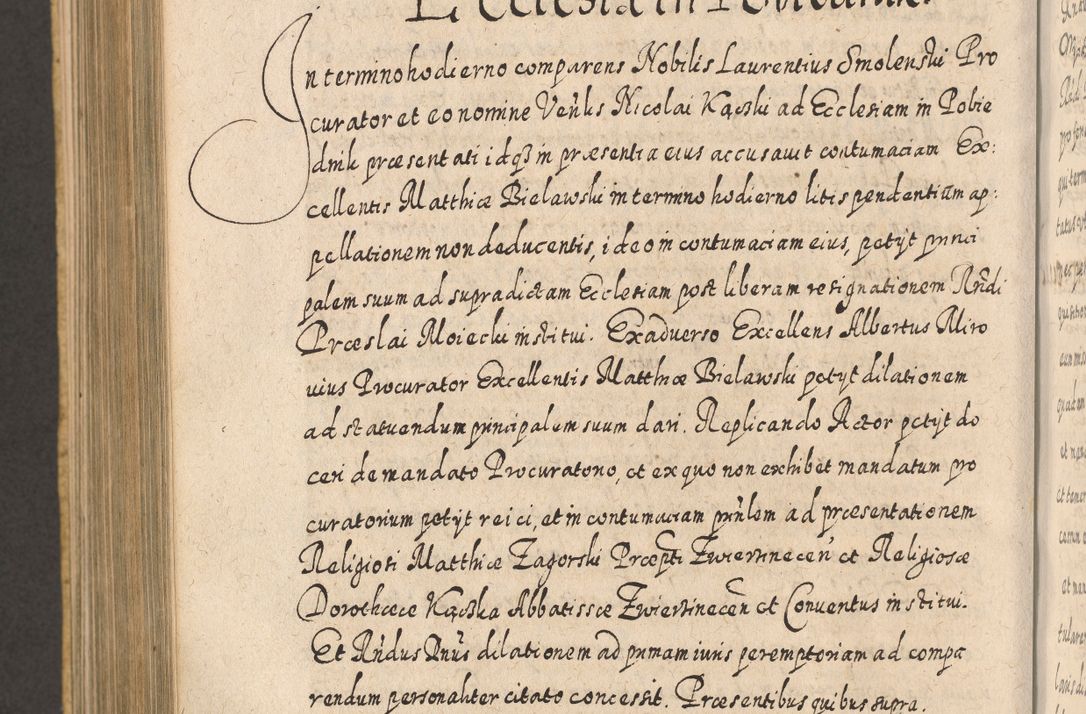 In termino hodierno comparens Nobilis Laurentius Smolenski Pro
curator et eo nomine Venlis Nicolai Kącski ad Ecclesiam in Pobie
dnik præsentati idq3 in præsentia eius accusavit contumaciam Ex:
cellentis Matthiæ Bielawski in termino hodierno litis pendentium ap:
pellationem non deducentis, ideo in contumaciam eius, petijt princi
palem suum ad supradictam Ecclesiam post liberam resignationem Rndi
Præslai Moiecki institui. Exadverso Excellens Albertus Miro
vius Procurator Excellentis Matthiæ Bielawski petijt dilationem
ad statuendum principalem suum dari. Replicando Actor petijt do
ceri de mandato Procuratorio, et ex quo non exhibet mandatum pro
curatorium petijt reici, et in contumaciam prinlem ad præsentationem
Religiosi Matthiæ Zagorski Præpti Zwierzinecen et Religiosæ
Dorotheæ Kącska Abbatissæ Zwierzinecen et Conventus institui.
Et Rndus Dnus dilationem ad primam iuris peremptoriam ad compa
rendum personaliter citato concessit. Præsentibus quibus supra.